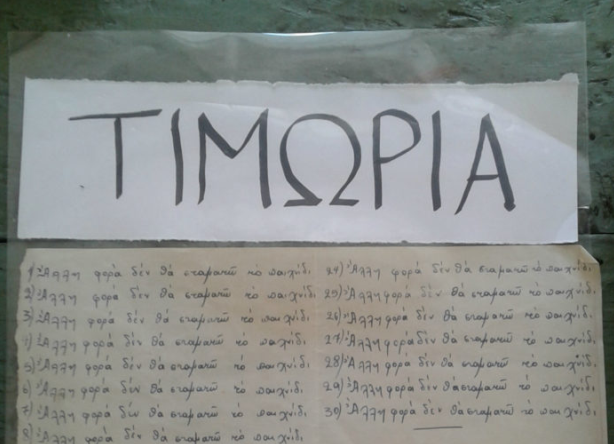 ΤΙΜΩΡΙΑ
1) Ἄλλη φορά δέν θά σταματῶ τό παιχνίδι
2) Ἄλλη φορά δέν θά σταματῶ τό παιχνίδι
3) Ἄλλη φορά δέν θά σταματῶ τό παιχνίδι
4) Ἄλλη φορά δέν θά σταματῶ τό παιχνίδι
5) Ἄλλη φορά δέν θά σταματῶ τό παιχνίδι
6) Ἄλλη φορά δέν θά σταματῶ τό παιχνίδι
7) Ἄλλη φορά δέν θά σταματῶ τό παιχνίδι
8) Ἄλλη φορά δέν θά σταματῶ τό παιχνίδι
24) Ἄλλη φορά δέν θά σταματῶ τό παιχνίδι
25) Ἄλλη φορά δέν θά σταματῶ τό παιχνίδι
26) Ἄλλη φορά δέν θά σταματῶ τό παιχνίδι
27) Ἄλλη φορά δέν θά σταματῶ τό παιχνίδι
28) Ἄλλη φορά δέν θά σταματῶ τό παιχνίδι
29) Ἄλλη φορά δέν θά σταματῶ τό παιχνίδι
30) Ἄλλη φορά δέν θά σταματῶ τό παιχνίδι